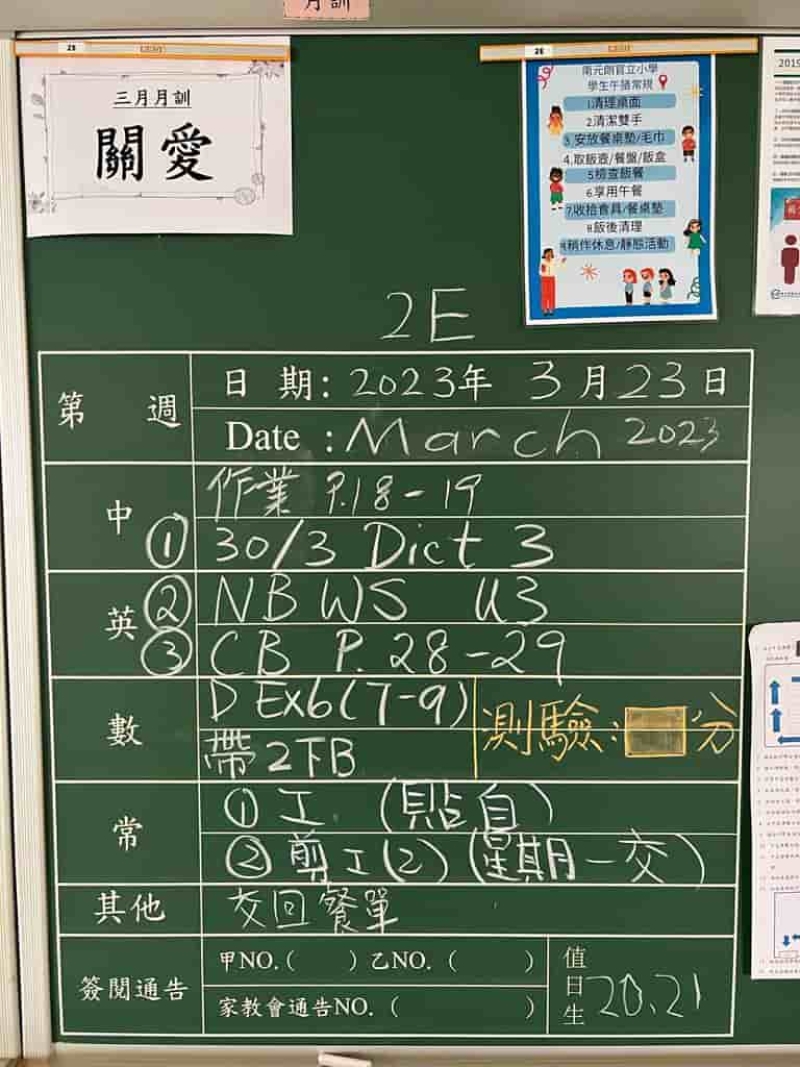 月訓
2E
三月月訓
關愛
2E
南元朗官立小學
學生午膳常規
1.清理桌面
2.清潔雙手
3.安放餐桌墊/毛巾
4.取飯壺/餐盤/飯盒
5檢查飯餐
6.享用午餐
7.收拾食具/餐桌墊
8.飯後清理
9.稍作休息/靜態活動
2019
2E
第 週
日 期: 2023年 3月23日
Date : March 2023
中
作業 P.18-19
① 30/3 Dict 3
英
② NB WS U3
③ CB P. 28-29
數
D Ex6(7-9)
帶2下B
測驗: 分
常
① 工 (貼自)
② 剪工(2) (星期一交)
其他
交回餐單
簽閱通告
甲NO. ( ) 乙NO. ( )
家教會通告NO. ( )
值日生
20,21